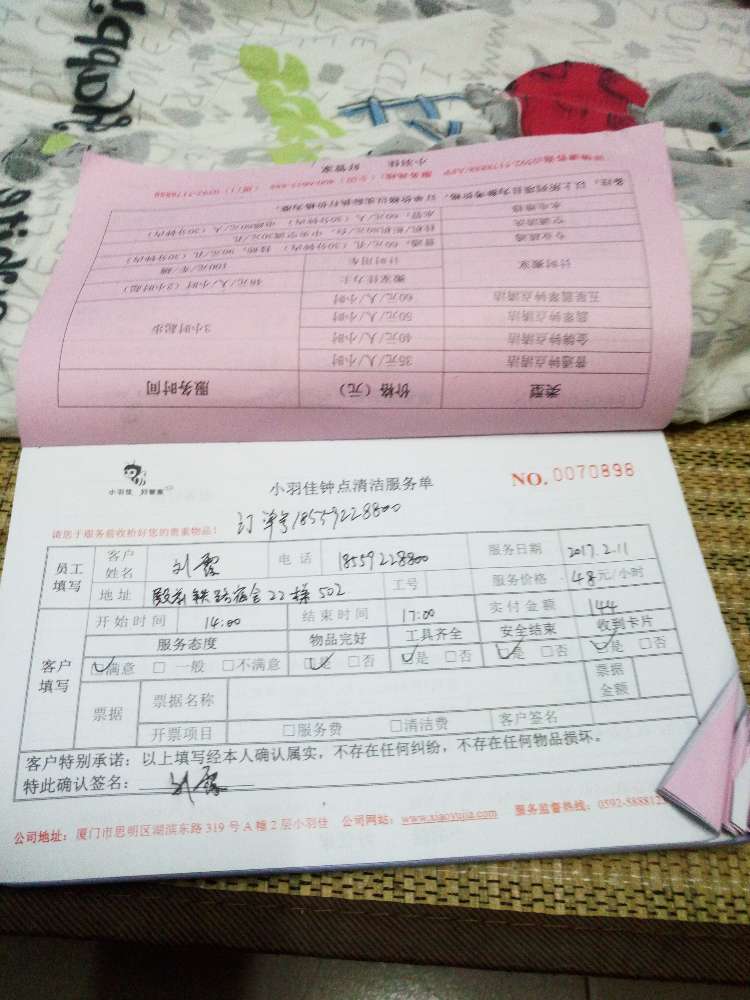 Happy
备注：以上所列项目为参考价格，订单价格以实际执行价格为准。
小羽佳 好管家
类型 价格（元） 服务时间
普通钟点清洁 35元/人/小时 3小时起步
金牌钟点清洁 40元/人/小时
翡翠钟点清洁 50元/人/小时
五星翡翠钟点清洁 60元/人/小时
计时搬家 搬家佳力士 48元/人/小时（2小时起）
计时用车 100元/车/辆
专业疏通 普通，60元/孔（30分钟内）
空调清洗
水电维修
小羽佳 好管家
小羽佳钟点清洁服务单 NO.0070898
请您于服务前收检好您的贵重物品！ 订单号18559228800
员工填写 客户姓名 刘霞 电话 18559228800 服务日期 2017.2.11
地址 殿前铁路宿舍22楼502 工号 服务价格 48元/小时
客户填写 开始时间 14:00 结束时间 17:00 实付金额 144
服务态度 物品完好 工具齐全 安全结束 收到卡片
☑满意 □一般 □不满意 ☑是 □否 ☑是 □否 ☑是 □否 ☑是 □否
票据 票据名称 票据金额
开票项目 □服务费 □清洁费 客户签名
客户特别承诺：以上填写经本人确认属实，不存在任何纠纷，不存在任何物品损坏。
特此确认签名：刘霞
公司地址：厦门市思明区湖滨东路319号A幢2层小羽佳 公司网站：www.xiaoyujia.com 服务监督热线：0592-588812